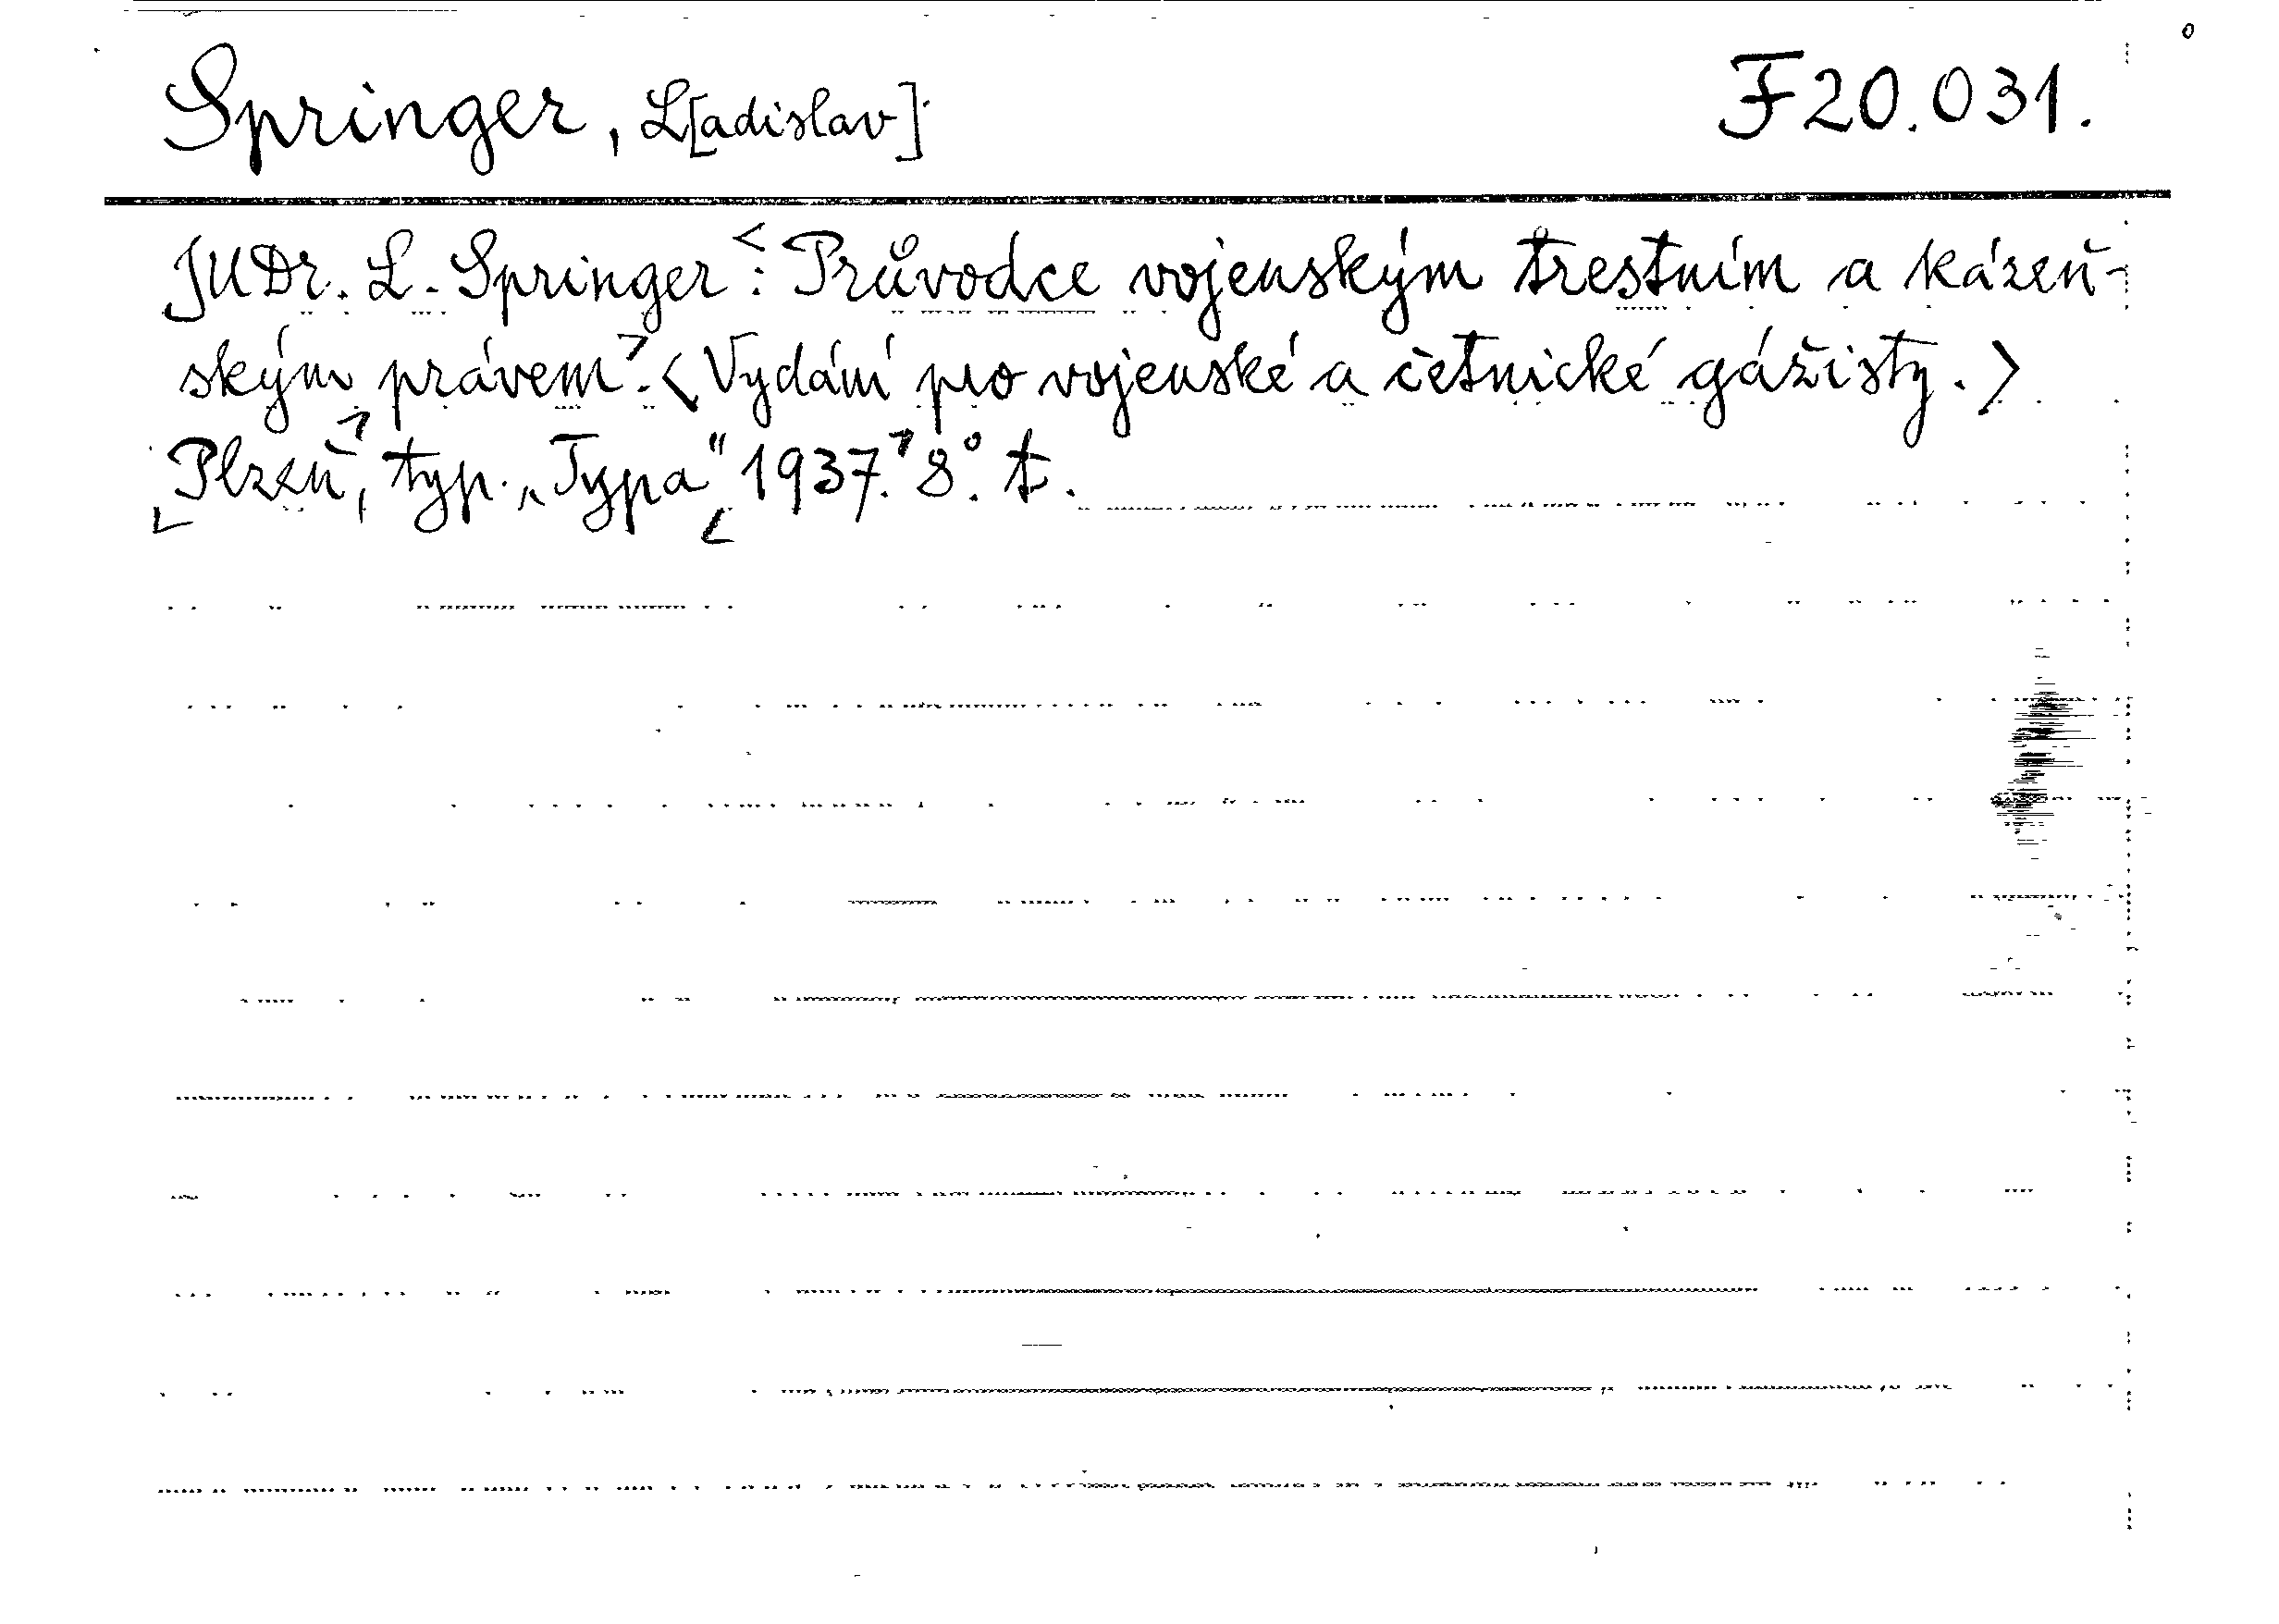 Springer, L[adislav] F 20.031.
JUDr. L. Springer<: Průvodce vojenským trestním a kázeň-
ským právem>. <Vydání pro vojenské a četnické gážisty.>
Plzeň, typ. „Typa" 1937. 8°. t.